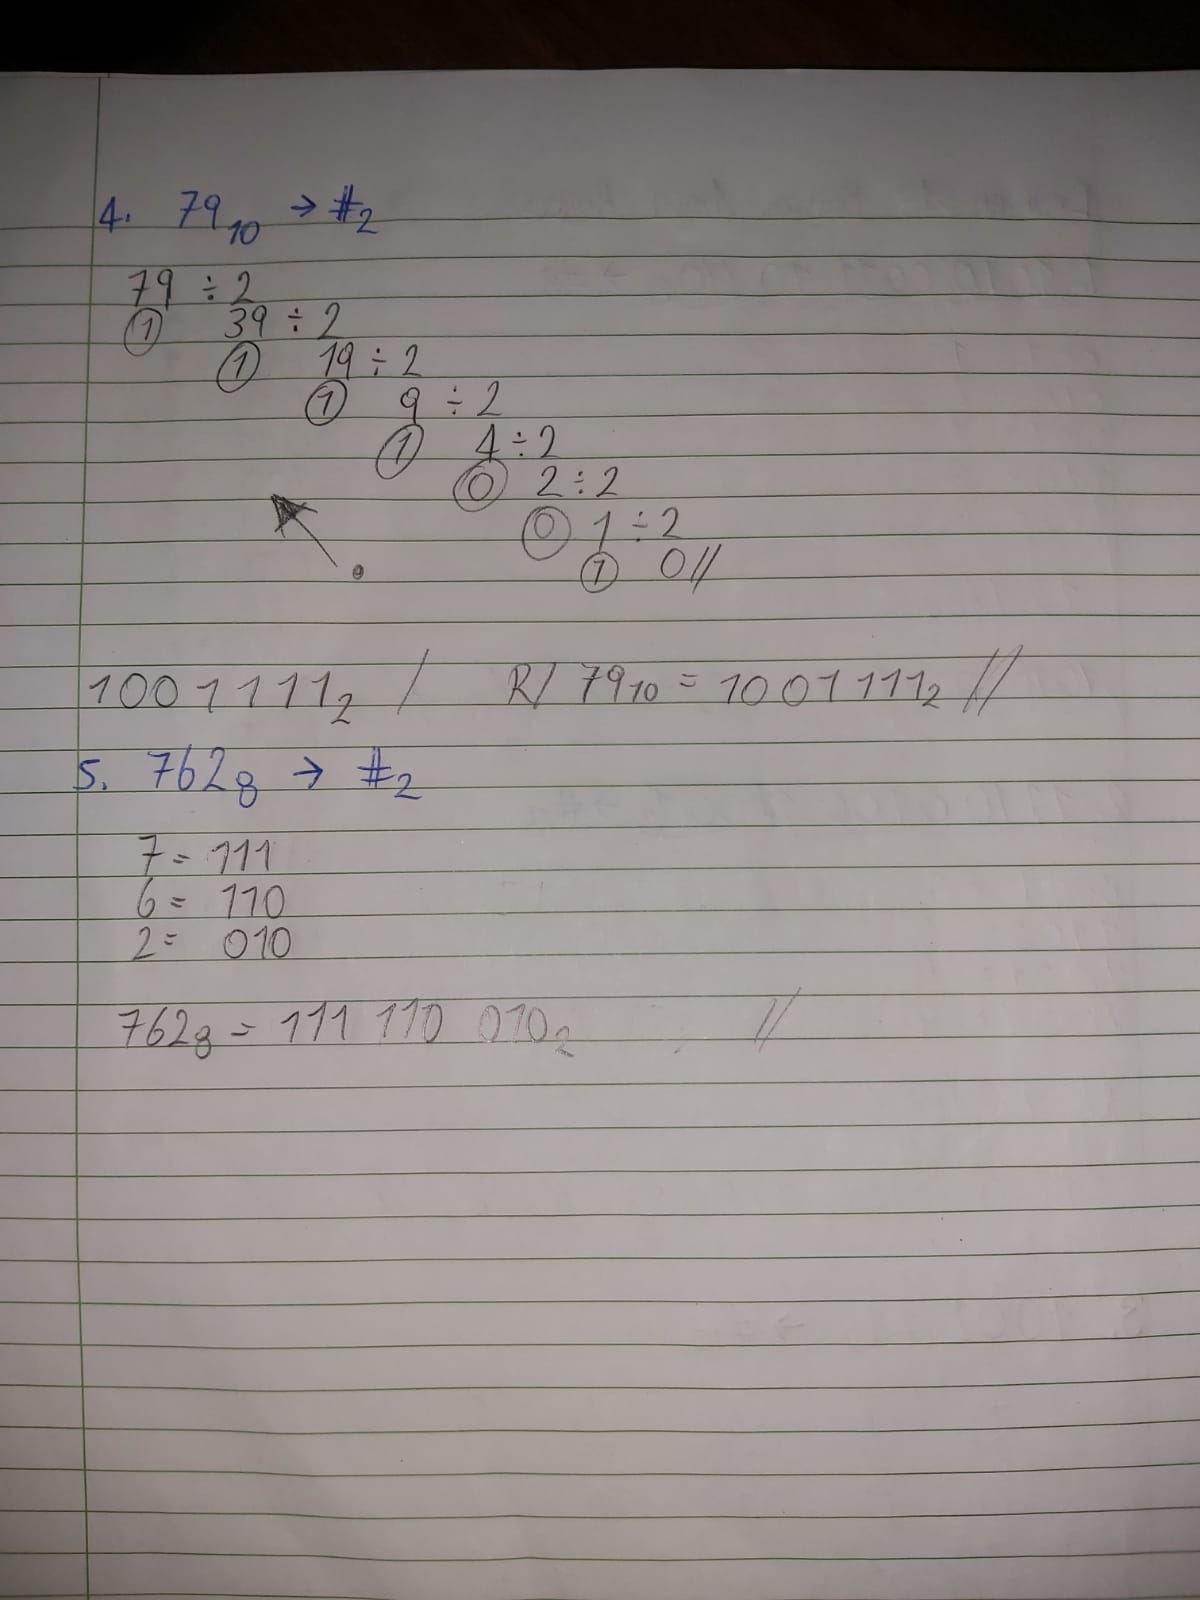 4. 79₁₀ → #₂
79 ÷ 2
1 39 ÷ 2
1 19 ÷ 2
1 9 ÷ 2
1 4 ÷ 2
0 2 ÷ 2
0 1 ÷ 2
1 0//
1001111₂ / R/ 79₁₀ = 1001111₂ //
5. 762₈ → #₂
7 = 111
6 = 110
2 = 010
762₈ = 111 110 010₂ //